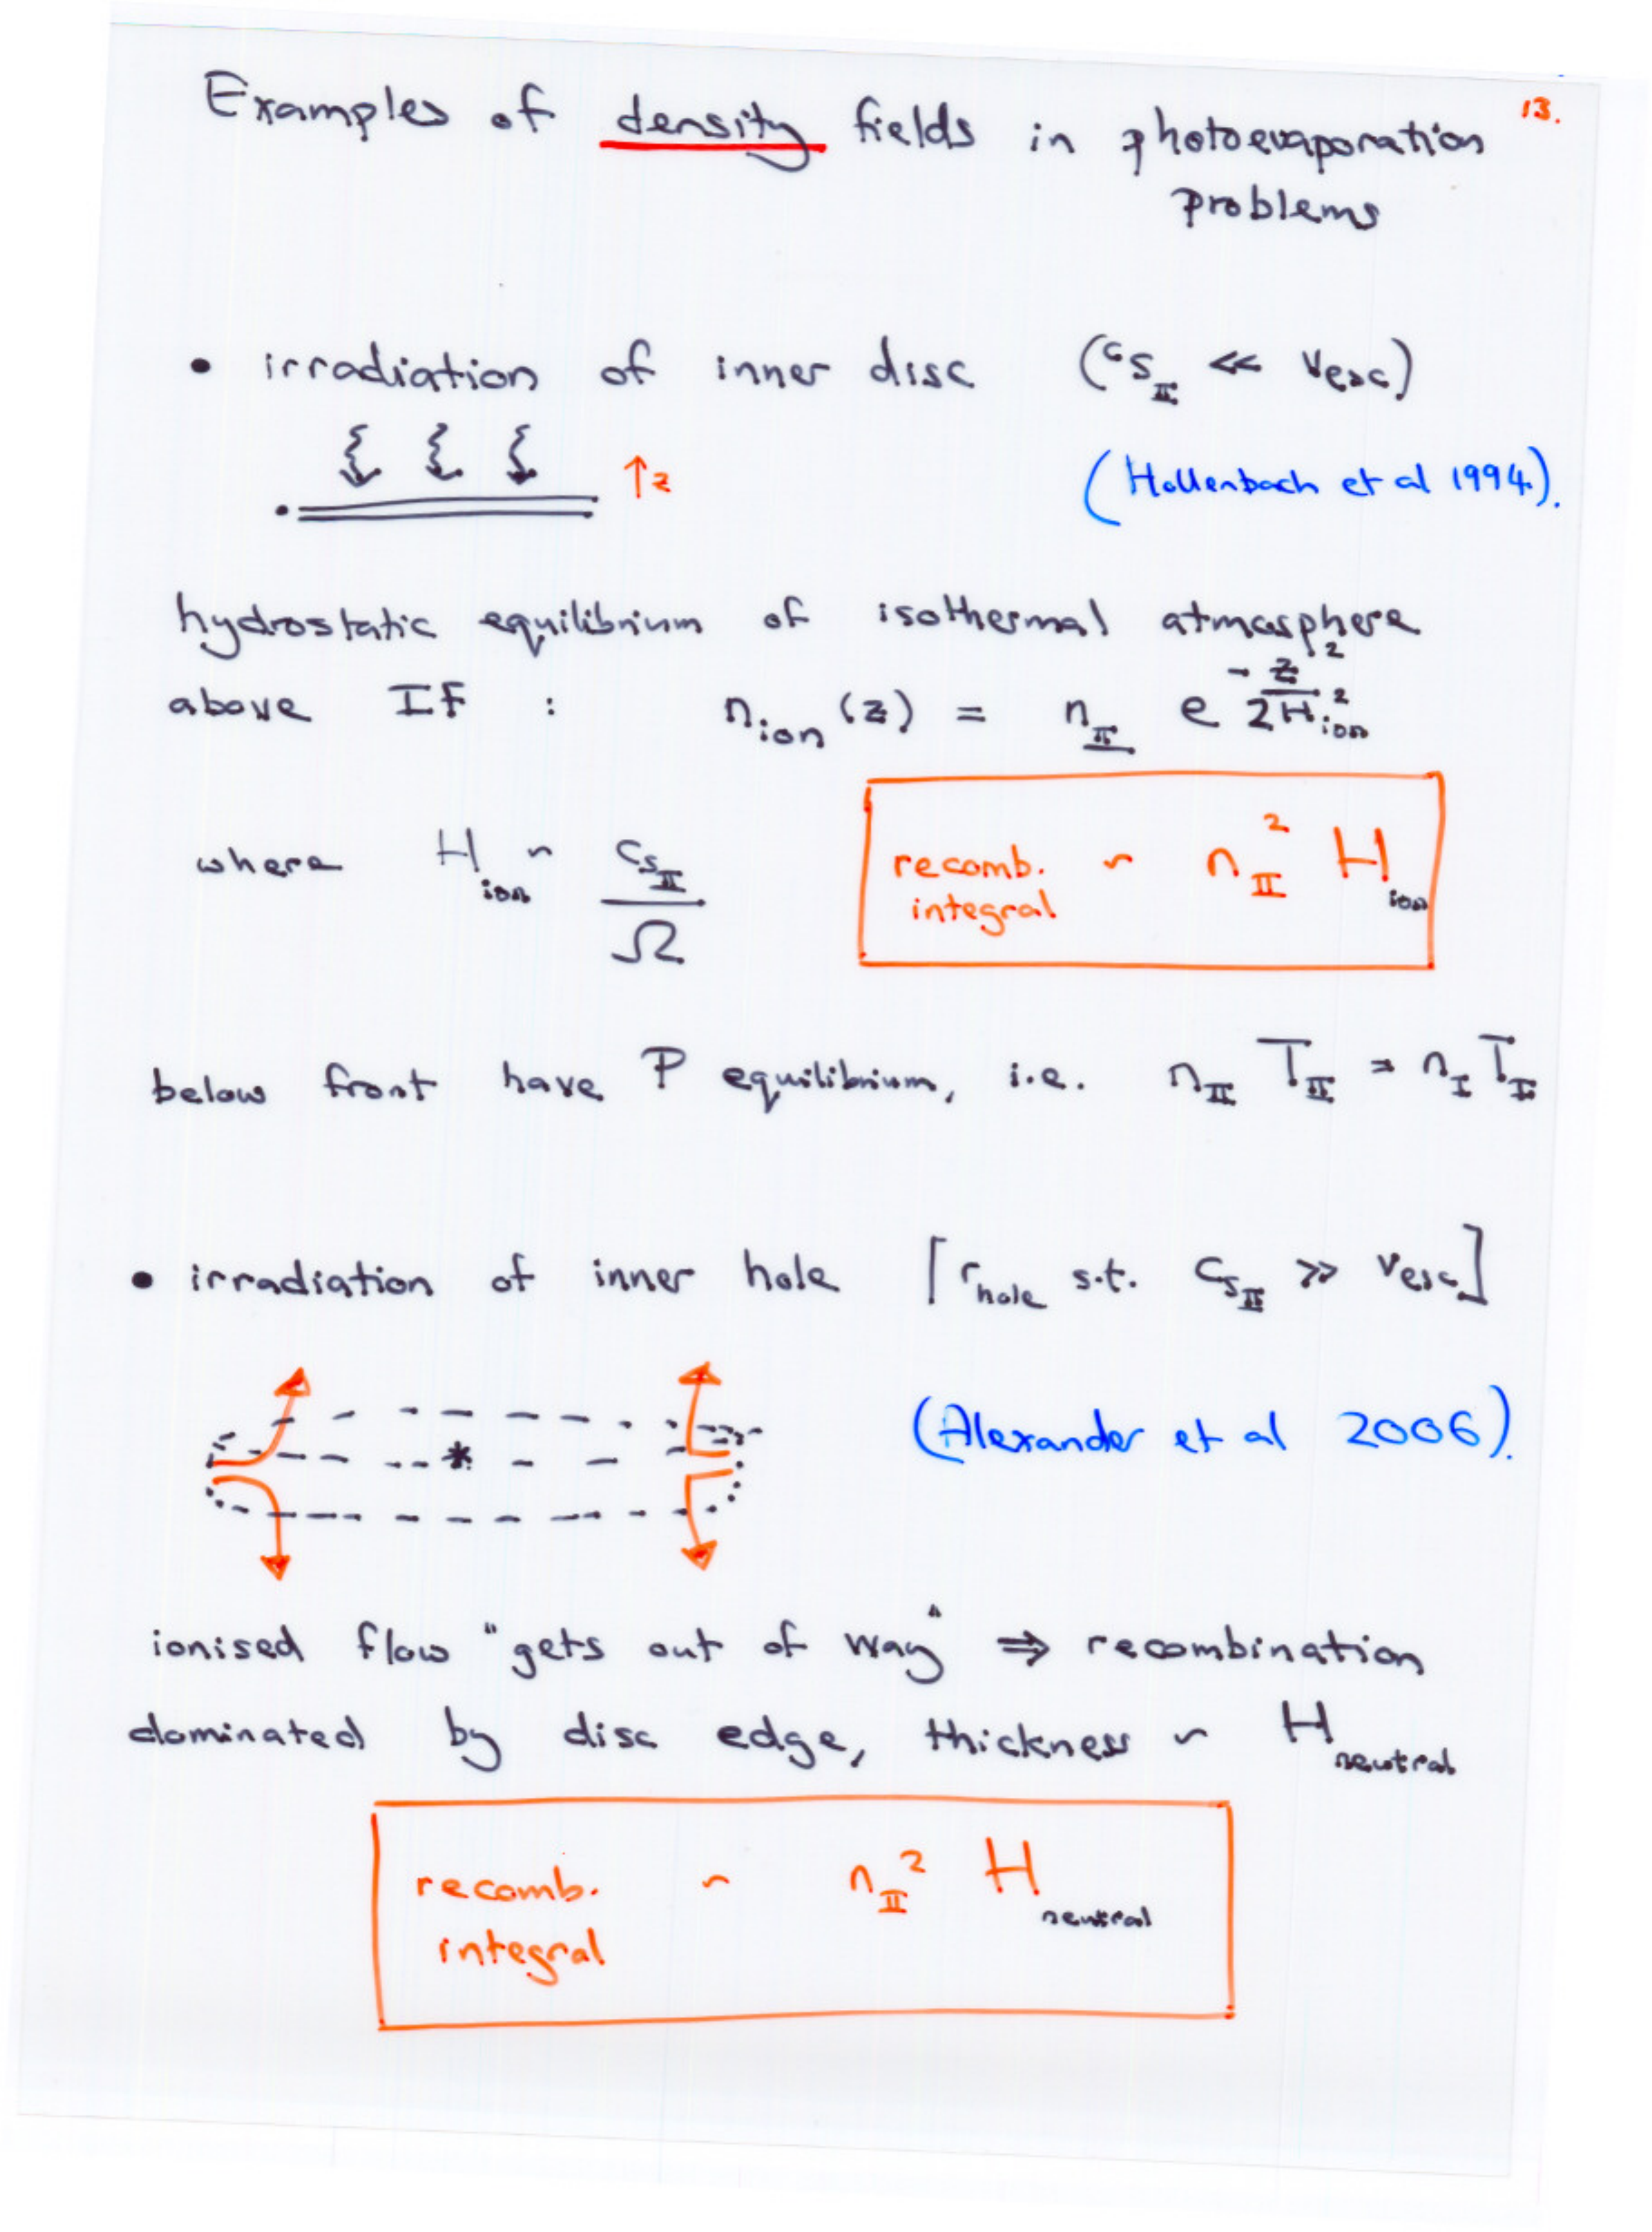 13.
Examples of density fields in photoevaporation
problems
• irradiation of inner disc (c_{s_{II}} << v_{esc})
↑z
(Hollenbach et al 1994).
hydrostatic equilibrium of isothermal atmosphere
above IF : n_{ion}(z) = n_{II} e^{-z^2/2H_{ion}^2}
where H_{ion} ~ c_{s_{II}}/Ω
recomb. ~ n_{II}^2 H_{ion}
integral
below front have P equilibrium, i.e. n_{II} T_{II} = n_I T_I
• irradiation of inner hole [r_{hole} s.t. c_{s_{II}} >> v_{esc}]
(Alexander et al 2006).
ionised flow "gets out of way" ⇒ recombination
dominated by disc edge, thickness ~ H_{neutral}
recomb. ~ n_{II}^2 H_{neutral}
integral